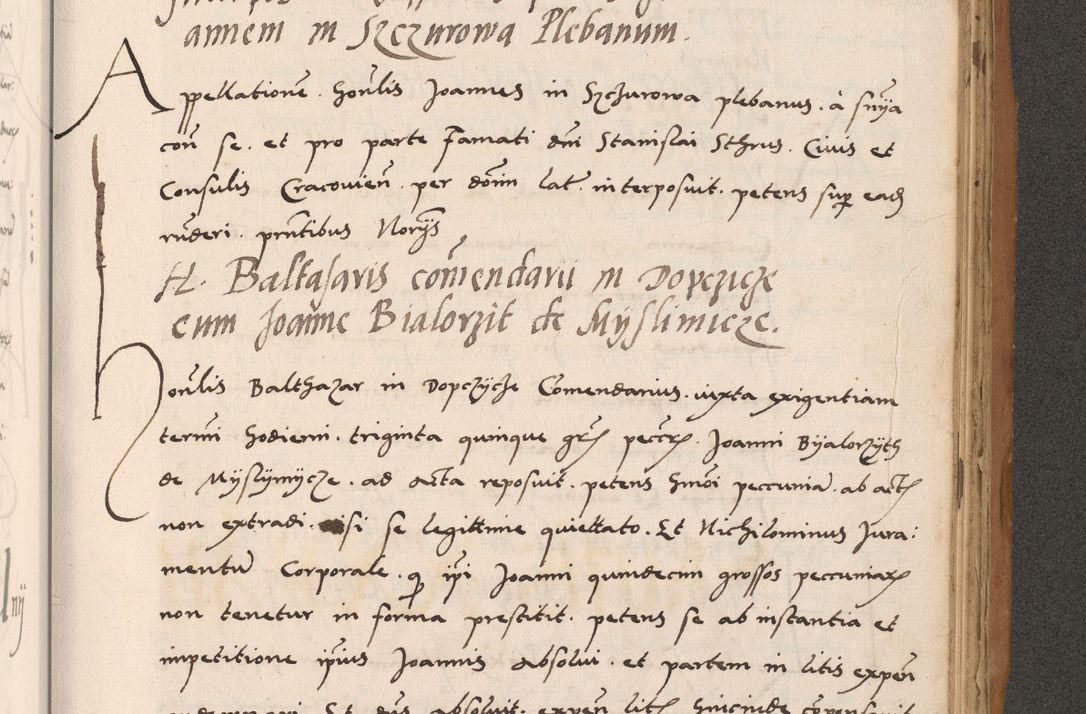 annem in Szczurowa Plebanum.
Appellatione. honlis Joannes in Szczurowa plebanus. à snÿa
con se. et pro parte Famati dni Stanislai Sthrus. Ciuis et
Consulis Cracouien. per donm lat. interposuit. petens sup ead
rnderi. pntibus Norÿs
H. Baltasaris comendarii in Dopczicze
cum Joanne Bialorzit de Mÿslimicze.
Honlis Balthazar in Dopczÿcze Comendarius. iuxta exigentiam
termi hodierni. triginta quinque grs peccrs. Joanni Bÿalorzÿth
de Mÿslÿmÿcze. ad acta reposuit. petens hmoi peccunia. ab acts
non extradi. nisi se legittime quiettato. Et Nichilominus Jura:
mentu Corporale. q ipi Joanni quindecim grossos peccuniar
non tenetur in forma prestitit. petens se ab instantia et
impetitione ipius Joannis absolui. et partem in litis expen
Et dns absoluit. expen litis hincinde